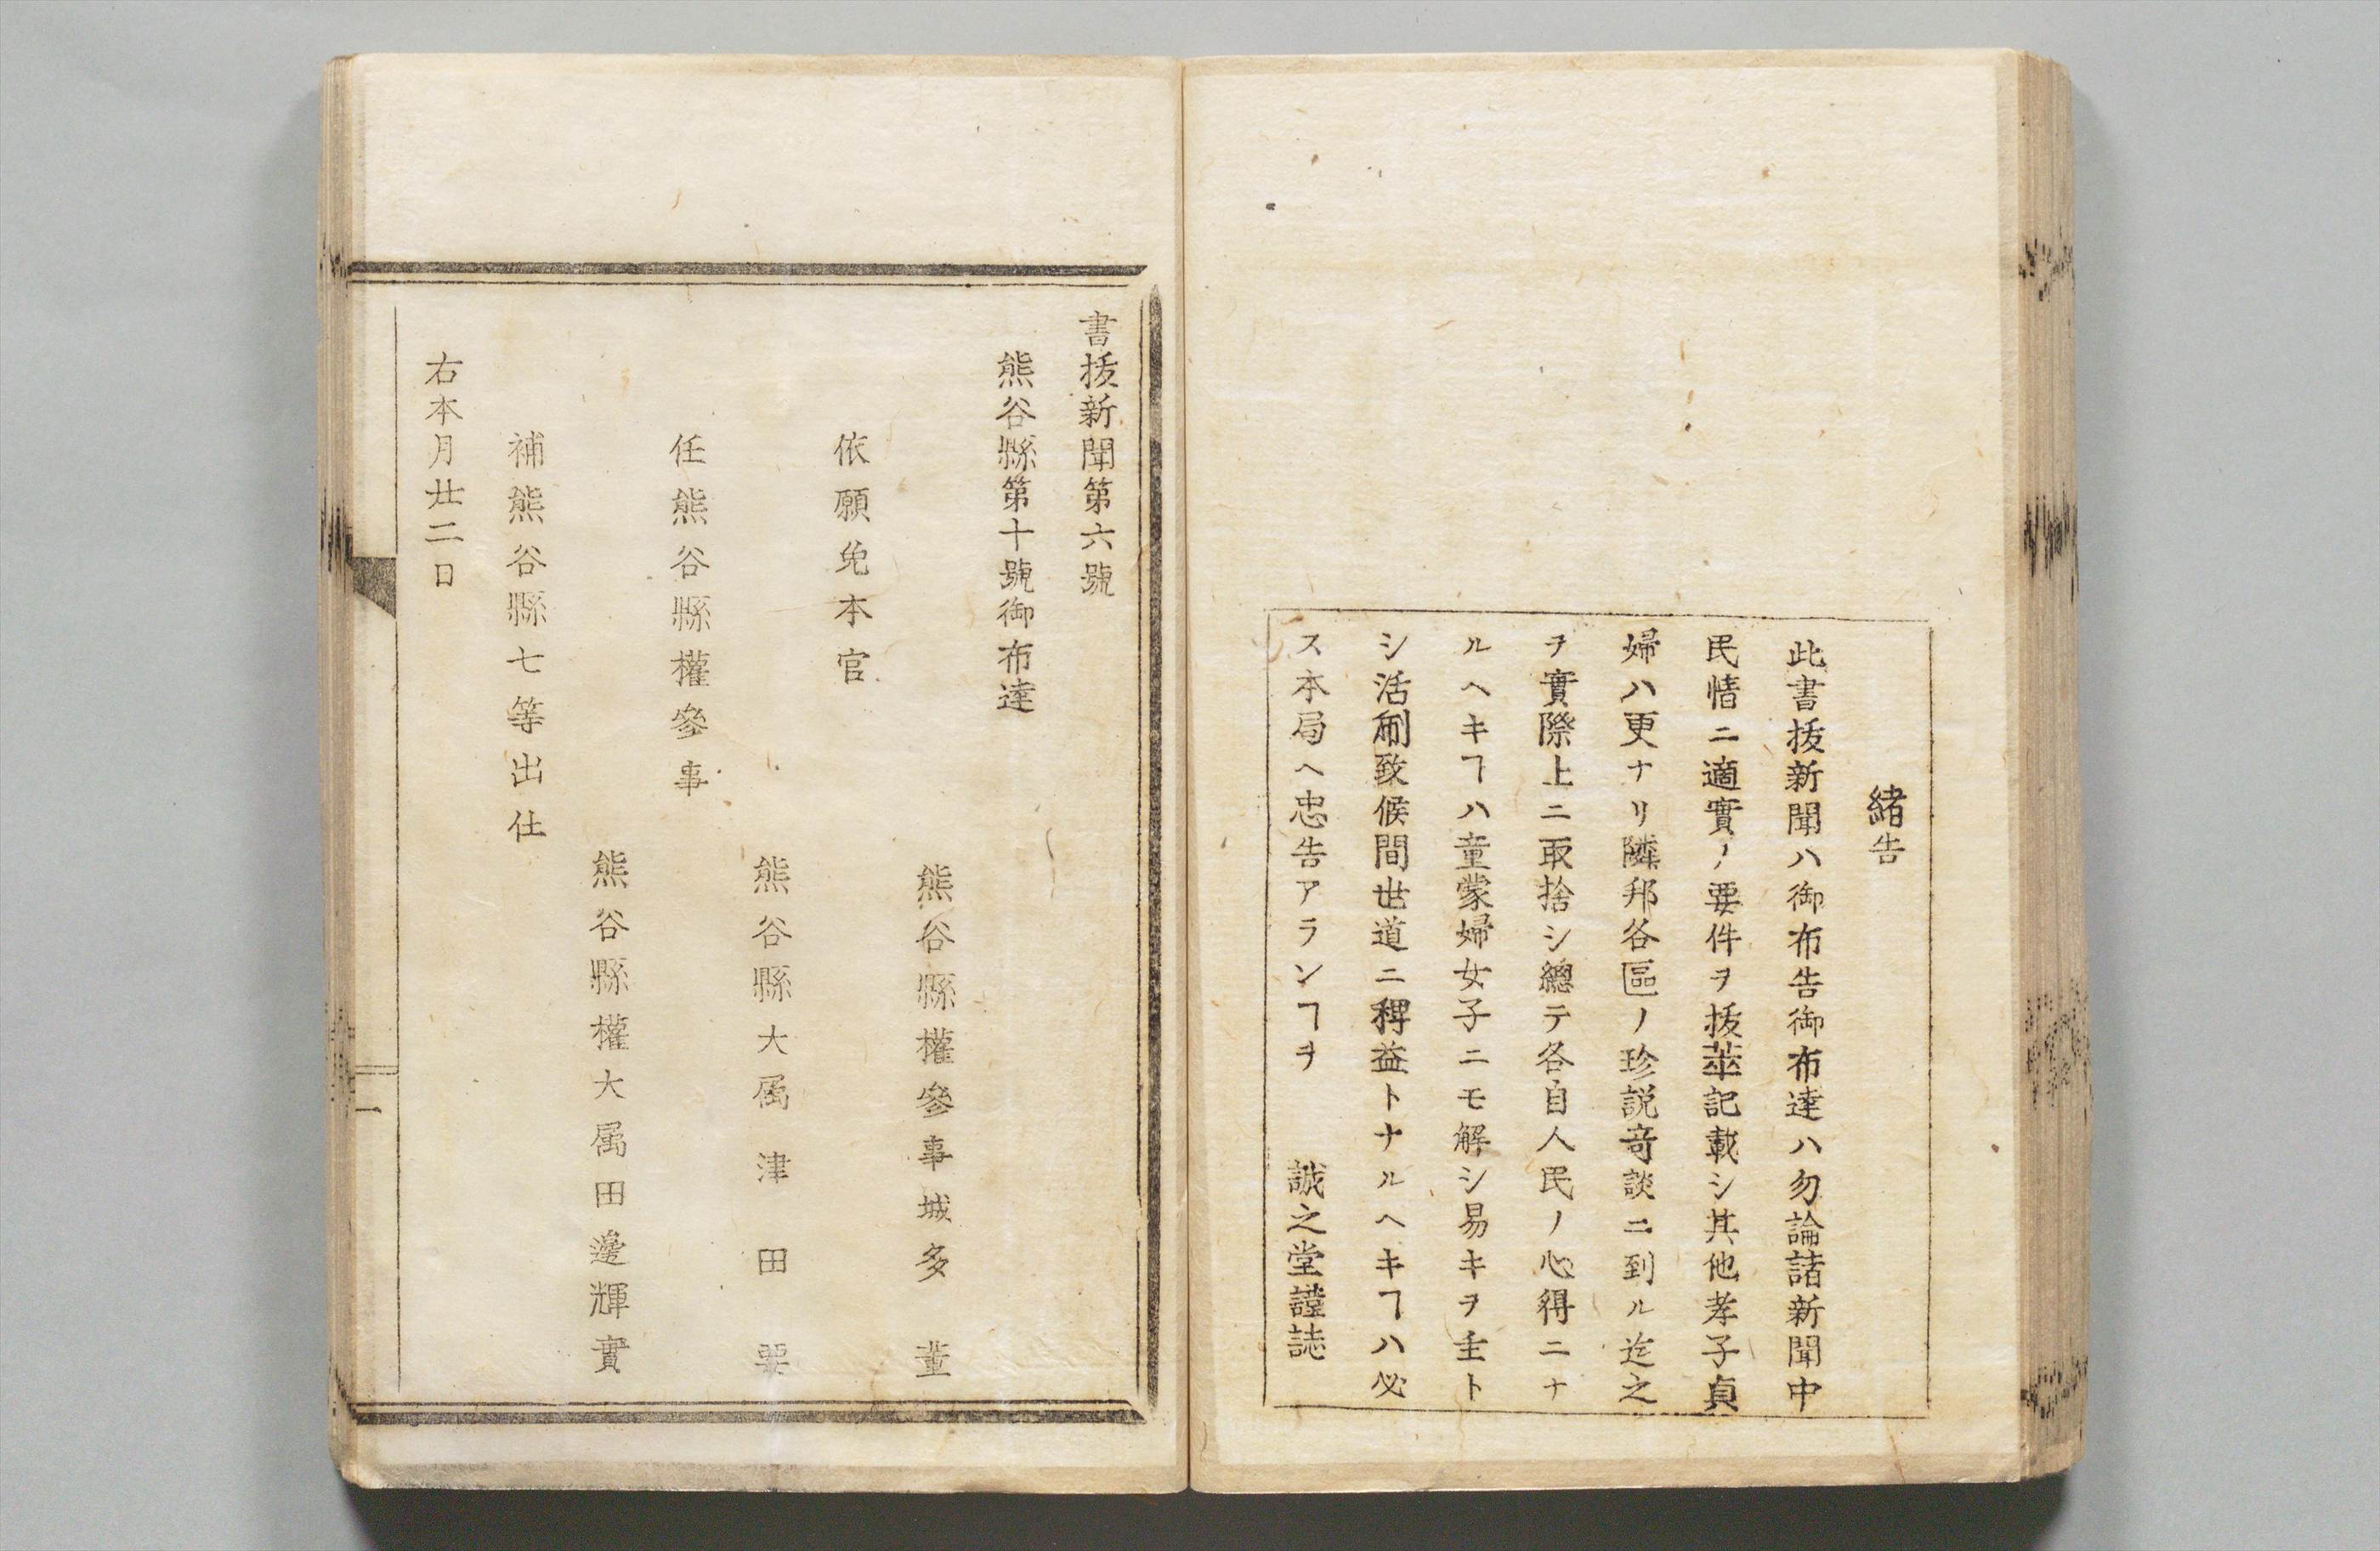 緒告
此書抜新聞ハ御布告御布達ハ勿論諸新聞中
民情ニ適實ノ要件ヲ抜萃記載シ其他孝子貞
婦ハ更ナリ隣邦各區ノ珍説竒談ニ到ル迄之
ヲ實際上ニ取捨シ總テ各自人民ノ心得ニナ
ルヘキヿハ童蒙婦女子ニモ解シ易キヲ主ト
シ活刷致候間世道ニ稗益トナルヘキヿハ必
ス本局ヘ忠告アランヿヲ 誠之堂謹誌
書抜新聞第六號
熊谷縣第十號御布達
熊谷縣權參事城多 董
依願免本官
熊谷縣大属津田 要
任熊谷縣權參事
熊谷縣權大属田邊輝實
補熊谷縣七等出仕
右本月廿二日
一